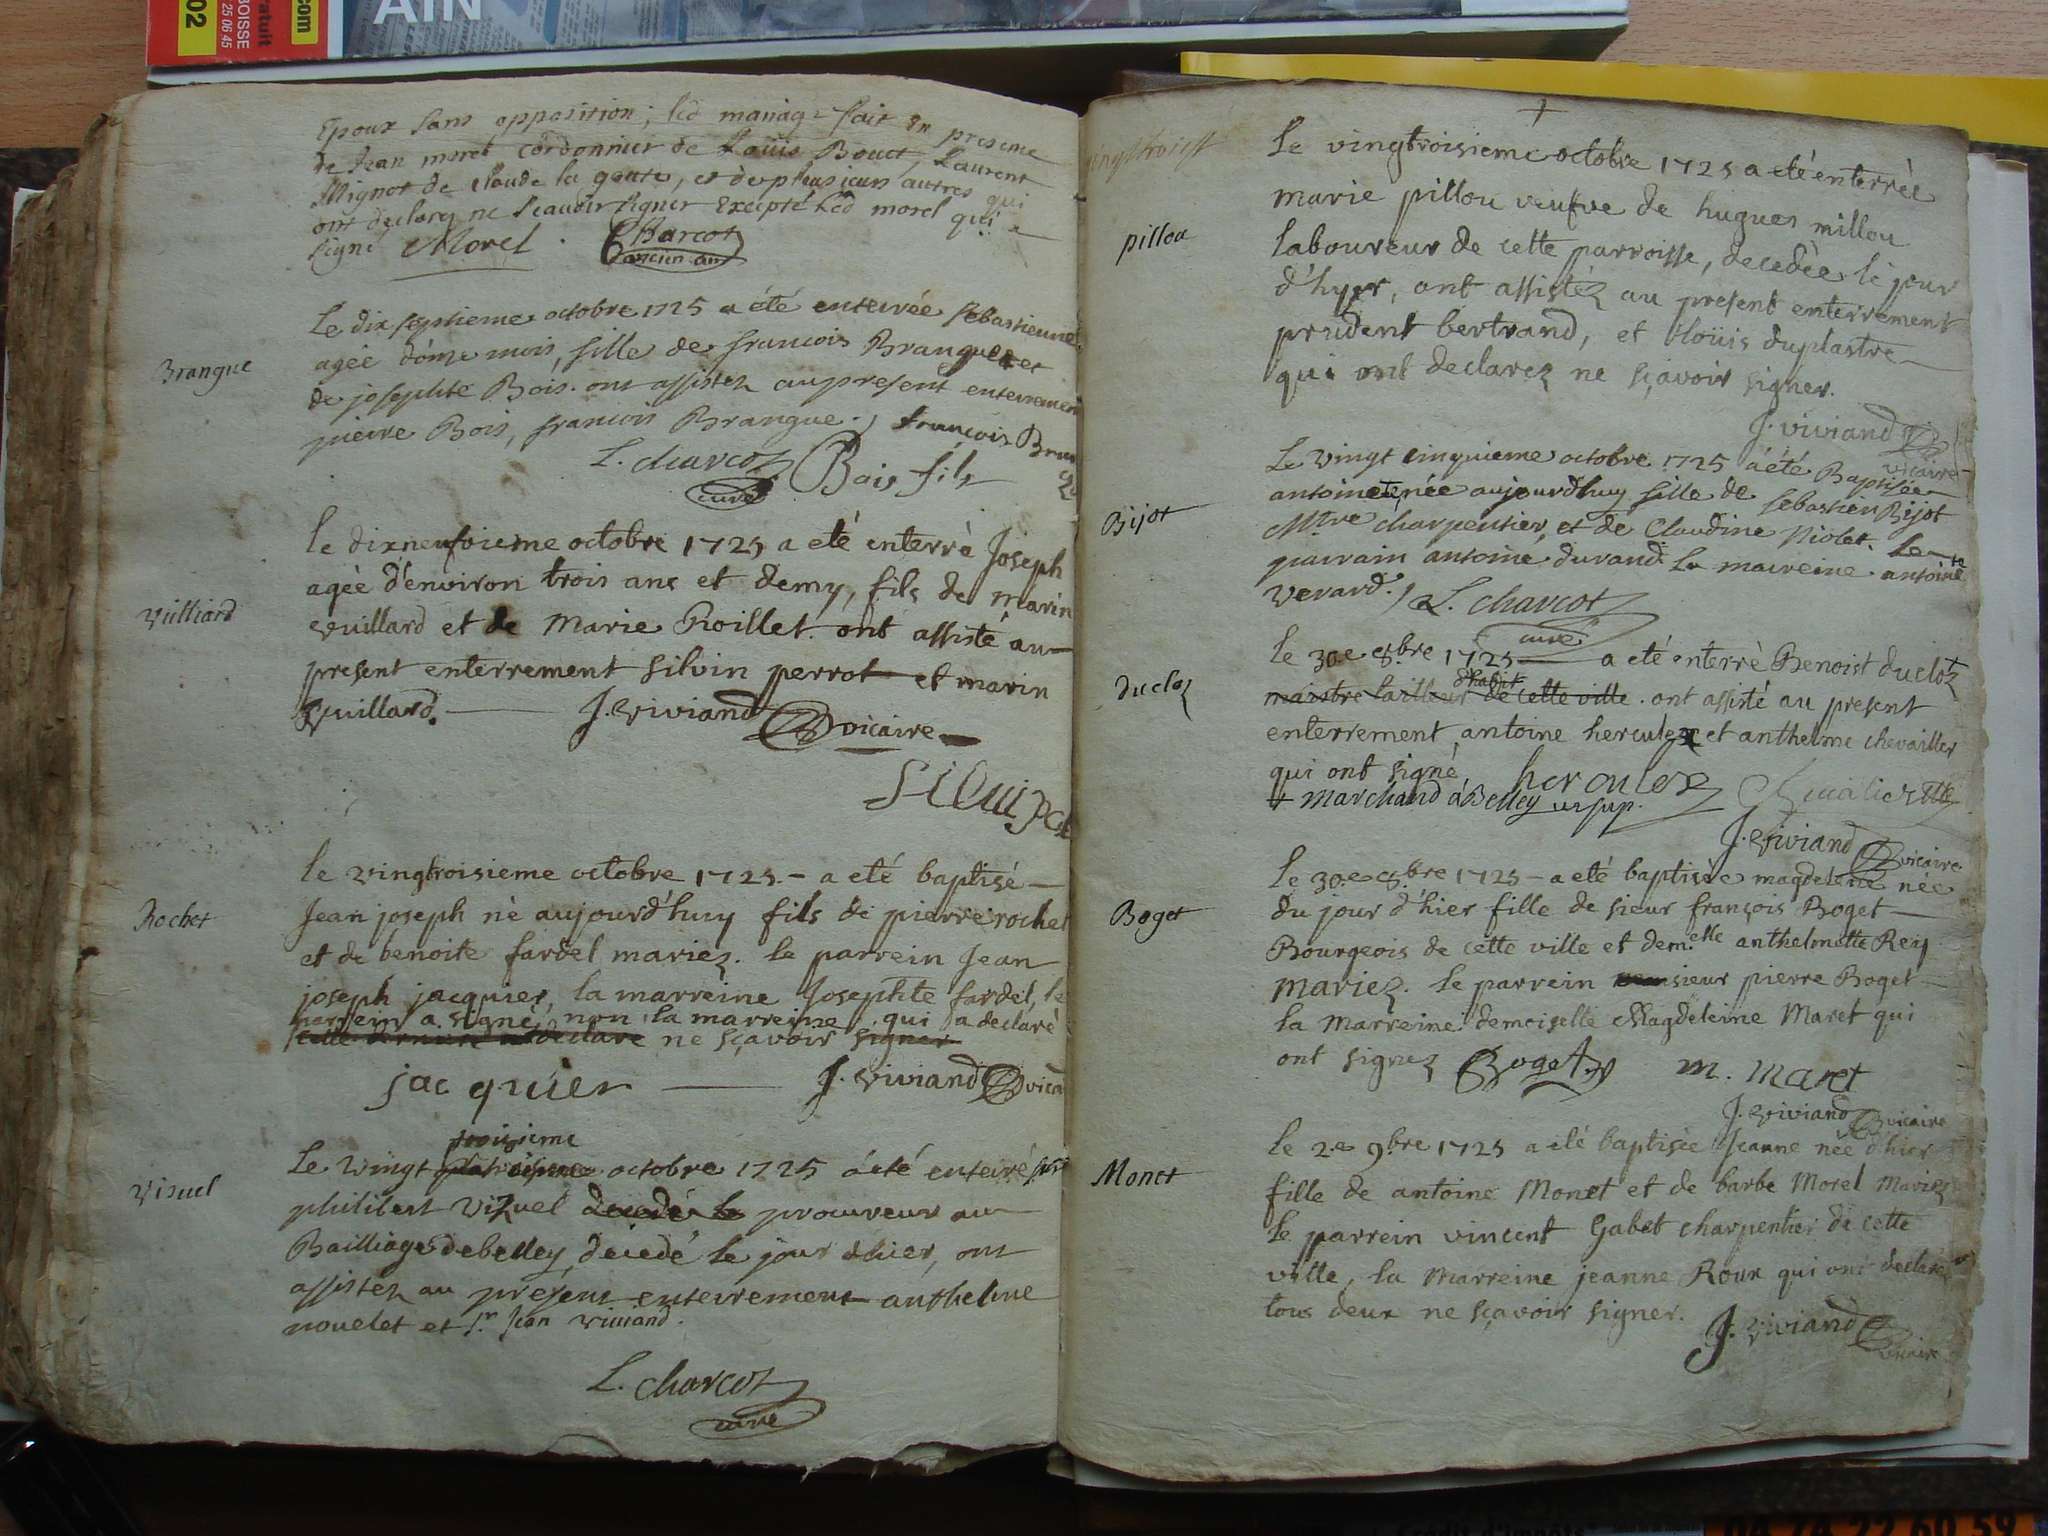 AIN
.com
gratuit
BOISSE
25 06 45
02
Epoux sans opposition; led mariag= fait En presence
de Jean morel cordonnier de Louis Bouet, Laurent
Mignot de claude la goute, et de plusieurs autres qui
ont declarez ne Scavoir signer Excepté Led morel qui
signé Morel. Charcot
ancien curé
Brangue
Le dix septieme octobre 1725 a été enterrée sebastienne
agée d'onze mois, fille de francois Brangue et
de josephte Bois. ont assistez au present enterrement
pierre Bois, francois Brangue. françois Bran
L. charcot Bois fils
curé
Vuilliard
le dixneufvieme octobre 1725 a eté enterrè Joseph
agée d'environ trois ans et demy, fils de marin
vuillard et de Marie Roillet. ont assisté au
present enterrement silvin perrot et marin
Vuillard. J. viviand vicaire
Rochet
le vingtroisieme octobre 1725 - a eté baptisé
Jean joseph nè aujourd'huy fils de pierre rochet
et de benoite fardel mariez. le parrein Jean
joseph jacquier, la marreine Josephte fardel, le
parrein a signé, non la marreine, qui a declaré
cette derniere a declaré ne sçavoir signer
jacquier J. viviand vica
Vizuel
troisieme
Le vingt octobre 1725 á eté enterré
philibert Vizuel decedé le procureur au
Bailliage de belley, decedé le jour d'hier, ont
assistez au présent enterrement anthelme
nouelet et sr. Jean viviand.
L. charcot
curé
vingttroisie
pillou
Le vingtroisieme octobre 1725 a eté enterrèe
marie pillou veufve de hugues millou
laboureur de cette parroisse, decedèe le jour
d'hyer, ont assistéz au present enterrement
prudent bertrand, et loüis duplastre
qui ont declarez ne sçavoir signer.
J. viviand
vicaire
Bijot
Le vingt cinquieme octobre 1725 á été Baptisée
antoinete née aujourdhuy fille de sebastien Bijot
Mtre charpentier, et de Claudine Violet. Le
parrain antoine durand. La marreine antointe
verard. L. charcot
curé
Ducloz
le 30.e 8.bre 1725 a eté enterrè Benoist ducloz
d'habit
maistre tailleur de cette ville. ont assisté au present
enterrement antoine herculez et anthelme chevallier
qui ont signé, herculez Chevalier
+ Marchand á Belley ut sup.
J. viviand vicaire
Boget
le 30.e 8.bre 1725 - a eté baptisèe magdeleine née
du jour d'hier fille de sieur françois Boget
Bourgeois de cette ville et dem.elle anthelmette Rey
mariez. le parrein sieur pierre Boget
la Marreine demoiselle Magdeleine Maret qui
ont signez Boget M. Maret
J. viviand vicaire
Monet
le 2.e 9.bre 1725 a eté baptisèe Jeanne née d'hier
fille de antoine Monet et de barbe Morel Mariez
le parrein vincent Gabet charpentier de cette
ville, la Marreine jeanne Roux qui ont declarez
tous deux ne sçavoir signer.
J. viviand
vicaire
Crédit d'impôts
04 74 22 60 59